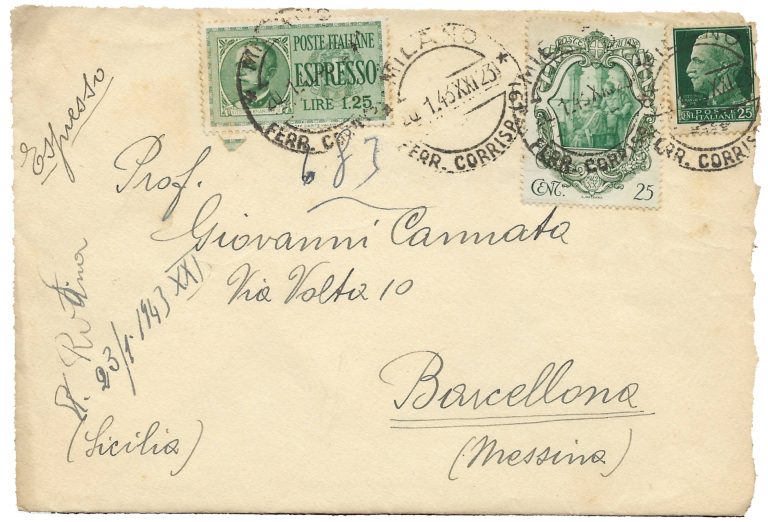 Espresso
POSTE ITALIANE
ESPRESSO
LIRE 1.25
MILANO
1.43 XXI 23
FERR. CORRISP.
CENT. 25
POSTE
ITALIANE
CENT 25
683
Prof.
Giovanni Cannata
Via Volta 10
Barcellona
(Messina)
23/1.1943 XXI
(Sicilia)